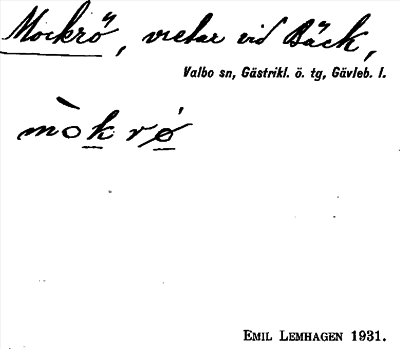 Mockrö, vretar vid Bäck,
Valbo sn, Gästrikl. ö. tg, Gävleb. l.
mòkrǿ
EMIL LEMHAGEN 1931.